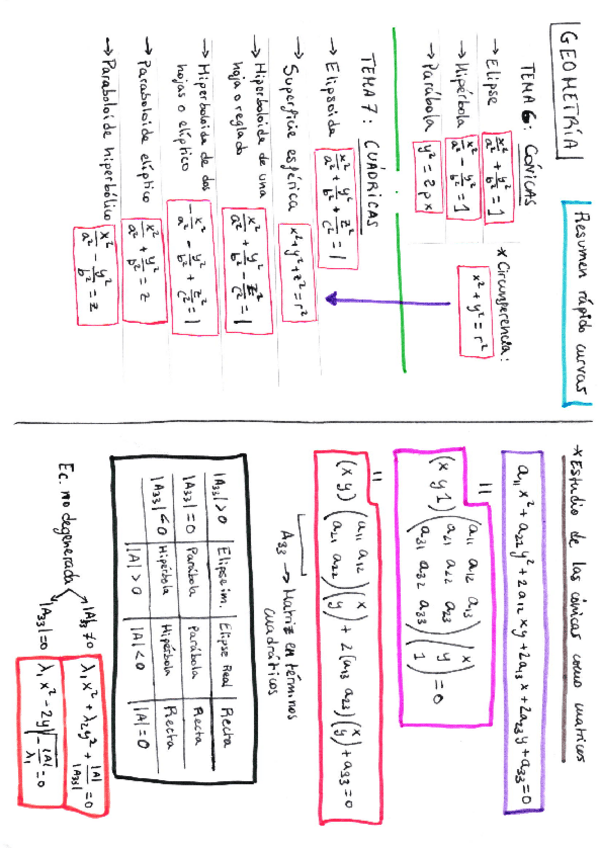 GEOMETRÍA
Resumen rápido curvas
TEMA 6: CÓNICAS
→ Elipse x²/a² + y²/b² = 1
→ Hipérbola x²/a² - y²/b² = 1
→ Parábola y² = 2px
* Circunferencia:
x² + y² = r²
TEMA 7: CUÁDRICAS
→ Elipsoide x²/a² + y²/b² + z²/c² = 1
→ Superficie esférica x² + y² + z² = r²
→ Hiperboloide de una
hoja o reglado x²/a² + y²/b² - z²/c² = 1
→ Hiperboloide de dos
hojas o elíptico -x²/a² - y²/b² + z²/c² = 1
→ Paraboloide elíptico x²/a² + y²/b² = z
→ Paraboloide hiperbólico x²/a² - y²/b² = z
* Estudio de las cónicas como matrices
a₁₁x² + a₂₂y² + 2a₁₂xy + 2a₁₃x + 2a₂₃y + a₃₃ = 0
=
(x y 1) (a₁₁ a₁₂ a₁₃ / a₂₁ a₂₂ a₂₃ / a₃₁ a₃₂ a₃₃) (x / y / 1) = 0
=
(x y) (a₁₁ a₁₂ / a₂₁ a₂₂) (x / y) + 2(a₁₃ a₂₃) (x / y) + a₃₃ = 0
A₃₃ → Matriz en términos
cuadráticos
|A₃₃| > 0 Elipse im. Elipse Real Recta
|A₃₃| = 0 Parábola Parábola Recta
|A₃₃| < 0 Hipérbola Hipérbola Recta
|A| > 0 |A| < 0 |A| = 0
Ec. no degenerada
|A|₃₃ ≠ 0 λ₁x² + λ₂y² + |A|/|A₃₃| = 0
|A₃₃| = 0 λ₁x² - 2y√(-|A|/λ₁) = 0